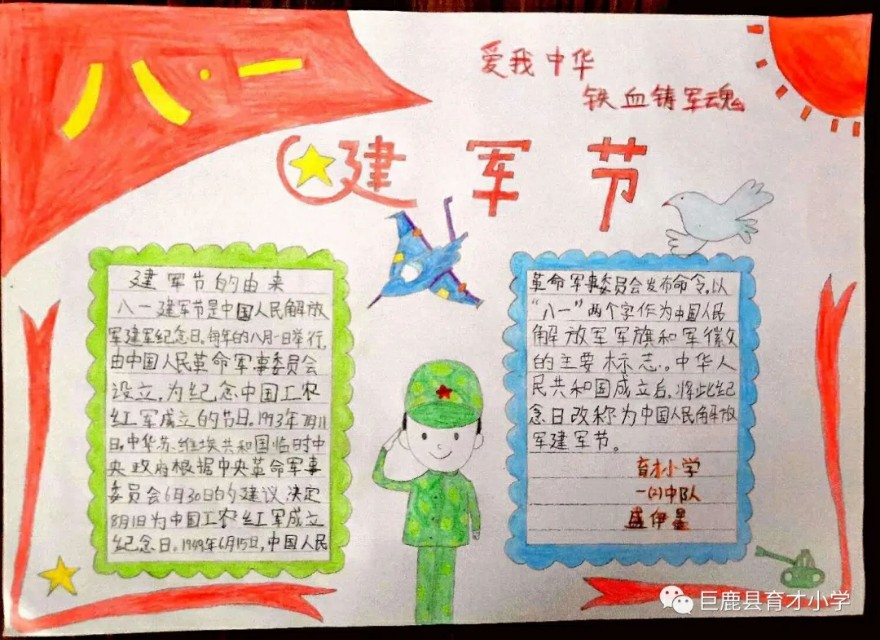 八·一
爱我中华
铁血铸军魂
建军节
建军节的由来
八一建军节是中国人民解放
军建军纪念日,每年的八月一日举行,
由中国人民革命军事委员会
设立,为纪念中国工农
红军成立的节日。1993年7月11
日,中华苏维埃共和国临时中
央政府根据中央革命军事
委员会6月30日的建议,决定
8月1日为中国工农红军成立
纪念日。1949年6月15日,中国人民
革命军事委员会发布命令,以
“八一”两个字作为中国人民
解放军军旗和军徽
的主要标志。中华人
民共和国成立后,将此纪
念日改称为中国人民解放
军建军节。
育才小学
一(2)中队
盛伊星
巨鹿县育才小学